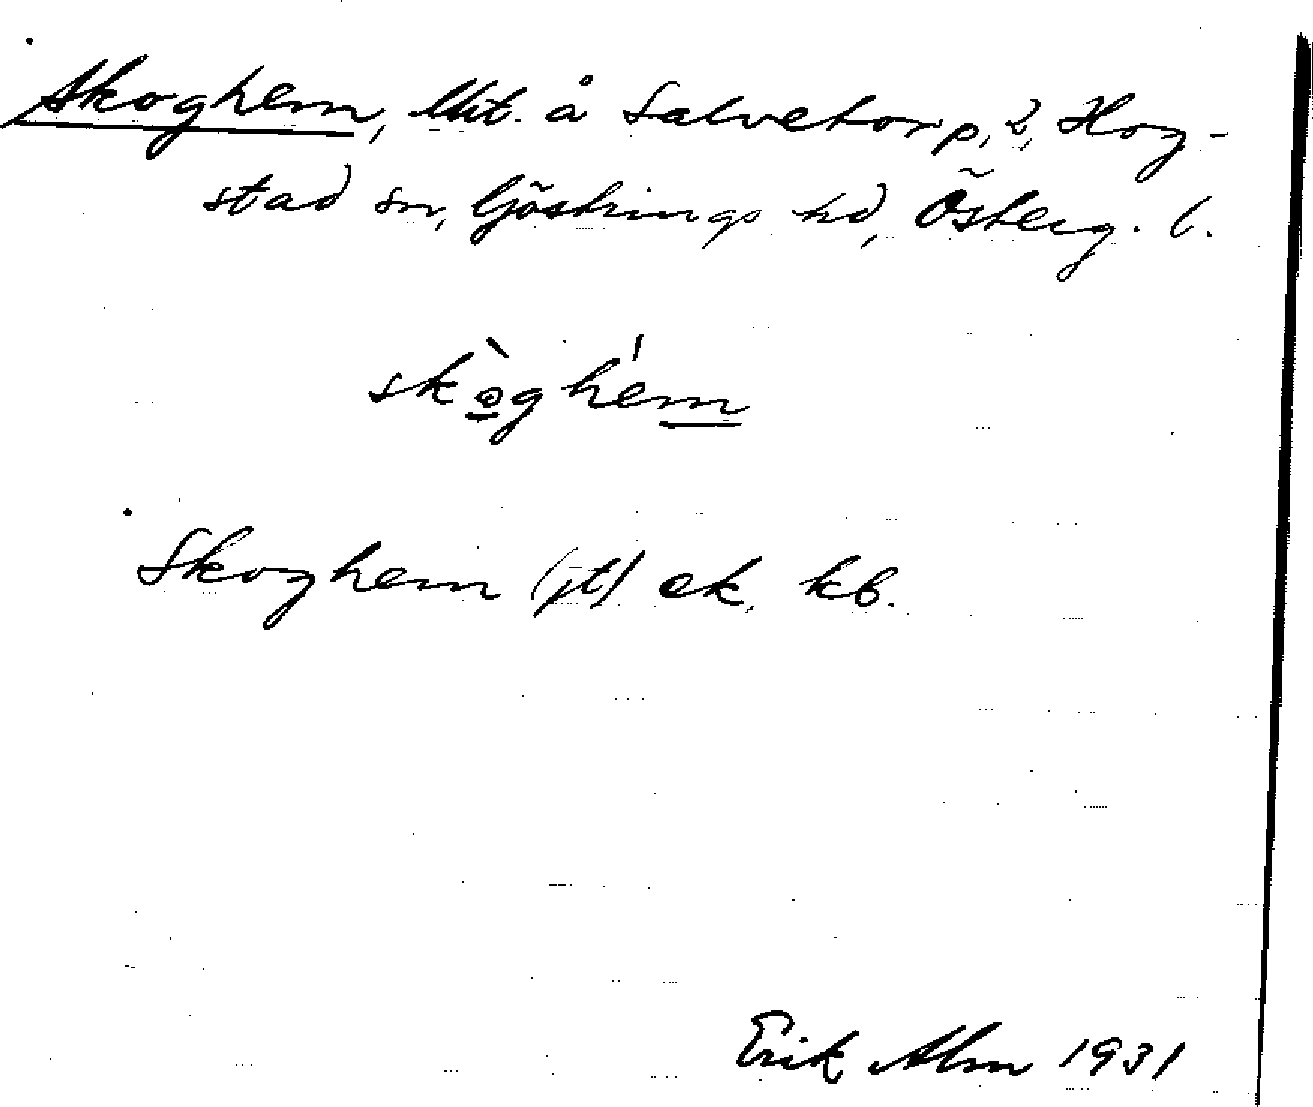 Skoghem, lht. å Salvetorp, 2, Hog-
stad sn, Göstrings hd, Österg. l.
sko̱ghem
Skoghem (jt) ek. kb.
Erik Alm 1931